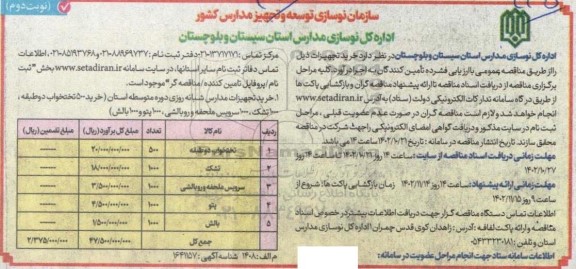 (نوبت دوم)
سازمان نوسازی توسعه و تجهیز مدارس کشور
اداره کل نوسازی مدارس استان سیستان و بلوچستان
اداره کل نوسازی مدارس استان سیستان و بلوچستان در نظر دارد خرید تجهیزات ذیل
را از طریق مناقصه عمومی با ارزیابی فشرده تامین کنندگان به اجرا درآورد. کلیه مراحل
برگزاری مناقصه از دریافت اسناد مناقصه تا ارائه پیشنهاد مناقصه گران و بازگشایی پاکت ها
از طریق درگاه سامانه تدارکات الکترونیکی دولت (ستاد) به آدرس www.setadiran.ir
انجام خواهد شد و لازم است مناقصه گران در صورت عدم عضویت قبلی ، مراحل
ثبت نام در سایت مذکور و دریافت گواهی امضای الکترونیکی را جهت شرکت در مناقصه
محقق سازند. تاریخ انتشار مناقصه در سامانه : تاریخ ۱۴۰۲/۱۰/۲۱ ساعت ۱۴ می باشد
مهلت زمانی دریافت اسناد مناقصه از سایت : ساعت ۱۴ روز ۱۴۰۲/۱۰/۲۱ تا ساعت ۱۴ روز
۱۴۰۲/۱۰/۲۷
مهلت زمانی ارائه پیشنهاد: ساعت ۱۴ روز ۱۴۰۲/۱۱/۱۴ زمان بازگشایی پاکت ها : شروع از
ساعت ۹ روز ۱۴۰۲/۱۱/۱۵
اطلاعات تماس دستگاه مناقصه گزار جهت دریافت اطلاعات بیشتر در خصوص اسناد
مناقصه و ارائه پاکت الف : آدرس : زاهدان کوی قدس چمران ۱ اداره کل نوسازی مدارس
استان و تلفن : ۰۵۴۳۳۲۳۰۱۸۱
اطلاعات سامانه ستاد جهت انجام مراحل عضویت در سامانه:
مرکز تماس : ۰۲۱-۱۳۷۱۷۱۷۱ دفتر ثبت نام : ۰۲۱-۸۸۹۶۹۷۳۷ و ۰۲۱-۸۵۱۹۳۷۶۸ اطلاعات
تماس دفاتر ثبت نام سایر استانها، در سایت سامانه www.setadiran.ir بخش "ثبت
نام / پروفایل تامین کننده / مناقصه گر" موجود است.
۱. خرید تجهیزات مدارس شبانه روزی دوره متوسطه استان ( خرید ۵۰۰ تختخواب دو طبقه ،
۱۰۰۰ تشک ، ۱۰۰۰ سرویس ملحفه و روبالشی ، ۱۰۰۰ پتو و ۱۰۰۰ بالش )
ردیف نام کالا تعداد مبلغ کل برآورد (ریال) مبلغ تضمین (ریال)
۱ تختخواب دو طبقه ۵۰۰ ۲۰/۰۰۰/۰۰۰/۰۰۰ ------
۲ تشک ۱۰۰۰ ۱۸/۰۰۰/۰۰۰/۰۰۰ ------
۳ سرویس ملحفه و روبالشی ۱۰۰۰ ۳/۵۰۰/۰۰۰/۰۰۰ ------
۴ پتو ۱۰۰۰ ۴/۵۰۰/۰۰۰/۰۰۰ ------
۵ بالش ۱۰۰۰ ۱/۵۰۰/۰۰۰/۰۰۰ ------
جمع کل ۴۷/۵۰۰/۰۰۰/۰۰۰ ۲/۳۷۵/۰۰۰/۰۰۰
م الف: ۱۴۰۸ شناسه آگهی : ۱۶۴۱۱۵۷